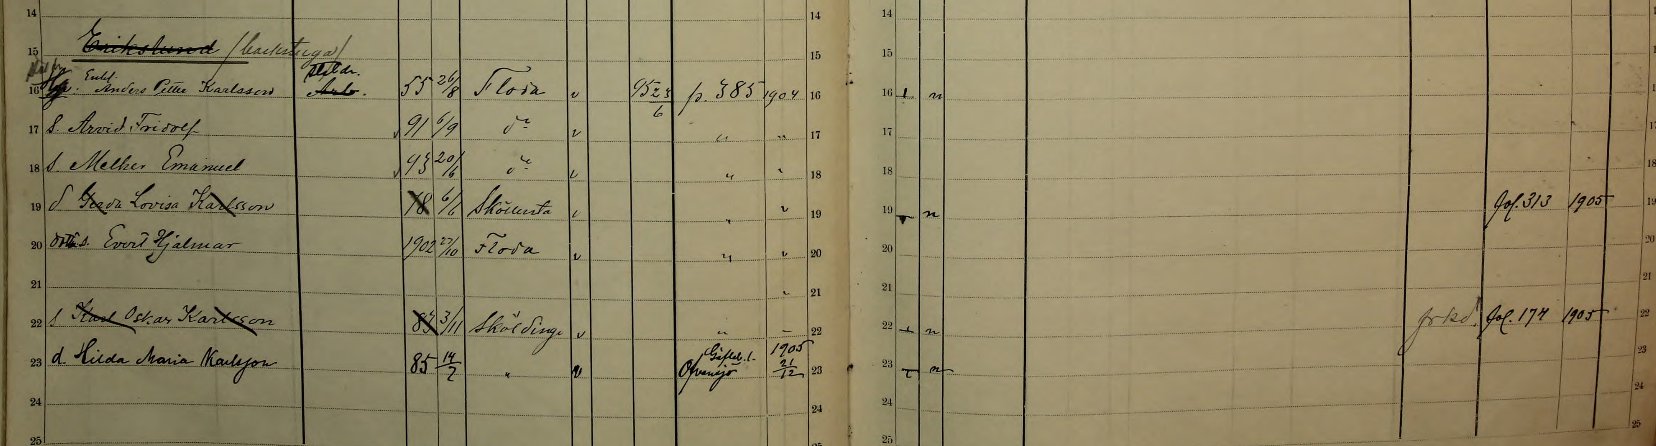 14 14 14
15 Erikslund /backstuga/ 15 15
Enkl. Afsk.
16 Anders Petter Karlsson 55 26/8 Floda v 95 23/6 p. 385 1904 16 16 n
17 S. Arvid Fridolf v 91 6/9 do v " " 17 17
18 S. Melker Emanuel v 93 20/6 do v " " 18 18
19 d Gerda Lovisa Karlsson 78 6/6 v " " 19 19 n fol. 313 1905 19
20 s. Evert Hjalmar 1902 27/10 Floda v " " 20 20
21 " 21 21
22 s Karl Oskar Karlsson 84 3/11 Sköldinge v " " 22 22 n fol. 174 1905 22
Gäfleb. l. 1905
23 d. Hilda Maria Karlsson 85 14/7 " v Ofvansjö 21/12 23 23 n 23
24 24 24 24
25 25 25